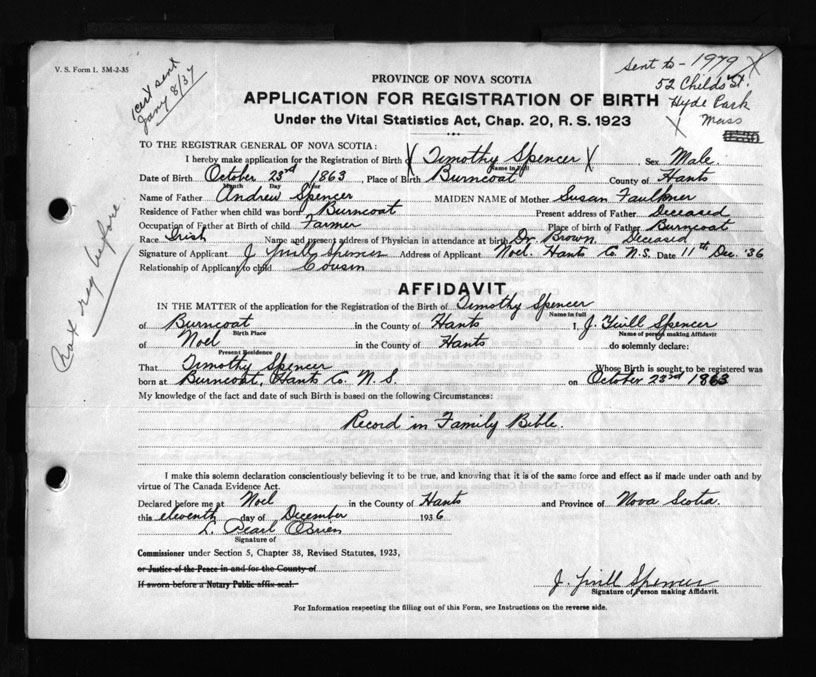 V. S. Form 1. 5M-2-35
cert sent
Jany 8/37
Sent to - 1979 X
52 Childs St.
Hyde Park
Mass
X
PROVINCE OF NOVA SCOTIA
APPLICATION FOR REGISTRATION OF BIRTH
Under the Vital Statistics Act, Chap. 20, R. S. 1923
TO THE REGISTRAR GENERAL OF NOVA SCOTIA:
I hereby make application for the Registration of Birth X Timothy Spencer X Sex Male.
Name in full
Date of Birth October 23rd 1863, Place of Birth Burncoat County of Hants
Month Day Year
Name of Father Andrew Spencer MAIDEN NAME of Mother Susan Faulkner
Residence of Father when child was born Burncoat Present address of Father Deceased
Occupation of Father at Birth of child Farmer Place of birth of Father Burncoat
Race Irish Name and present address of Physician in attendance at birth Dr. Brown. Deceased
Signature of Applicant J Spencer Address of Applicant Noel. Hants Co. N.S. Date 11th Dec. '36
Relationship of Applicant to child Cousin
Not reg before.
AFFIDAVIT
IN THE MATTER of the application for the Registration of the Birth of Timothy Spencer
Name in full
of Burncoat in the County of Hants I, J. Spencer
Birth Place Name of person making Affidavit
of Noel in the County of Hants do solemnly declare:
Present Residence
That Timothy Spencer Whose Birth is sought, to be registered was
born at Burncoat, Hants Co. N. S. on October 23rd 1863
My knowledge of the fact and date of such Birth is based on the following Circumstances:
Record in Family Bible.
I make this solemn declaration conscientiously believing it to be true, and knowing that it is of the same force and effect as if made under oath and by
virtue of The Canada Evidence Act.
Declared before me at Noel in the County of Hants and Province of Nova Scotia.
this eleventh day of December 1936
L. Pearl O'Brien
Signature of
Commissioner under Section 5, Chapter 38, Revised Statutes, 1923,
or Justice of the Peace in and for the County of
If sworn before a Notary Public affix seal.
J. Spencer
Signature of Person making Affidavit.
For Information respecting the filling out of this Form, see Instructions on the reverse side.